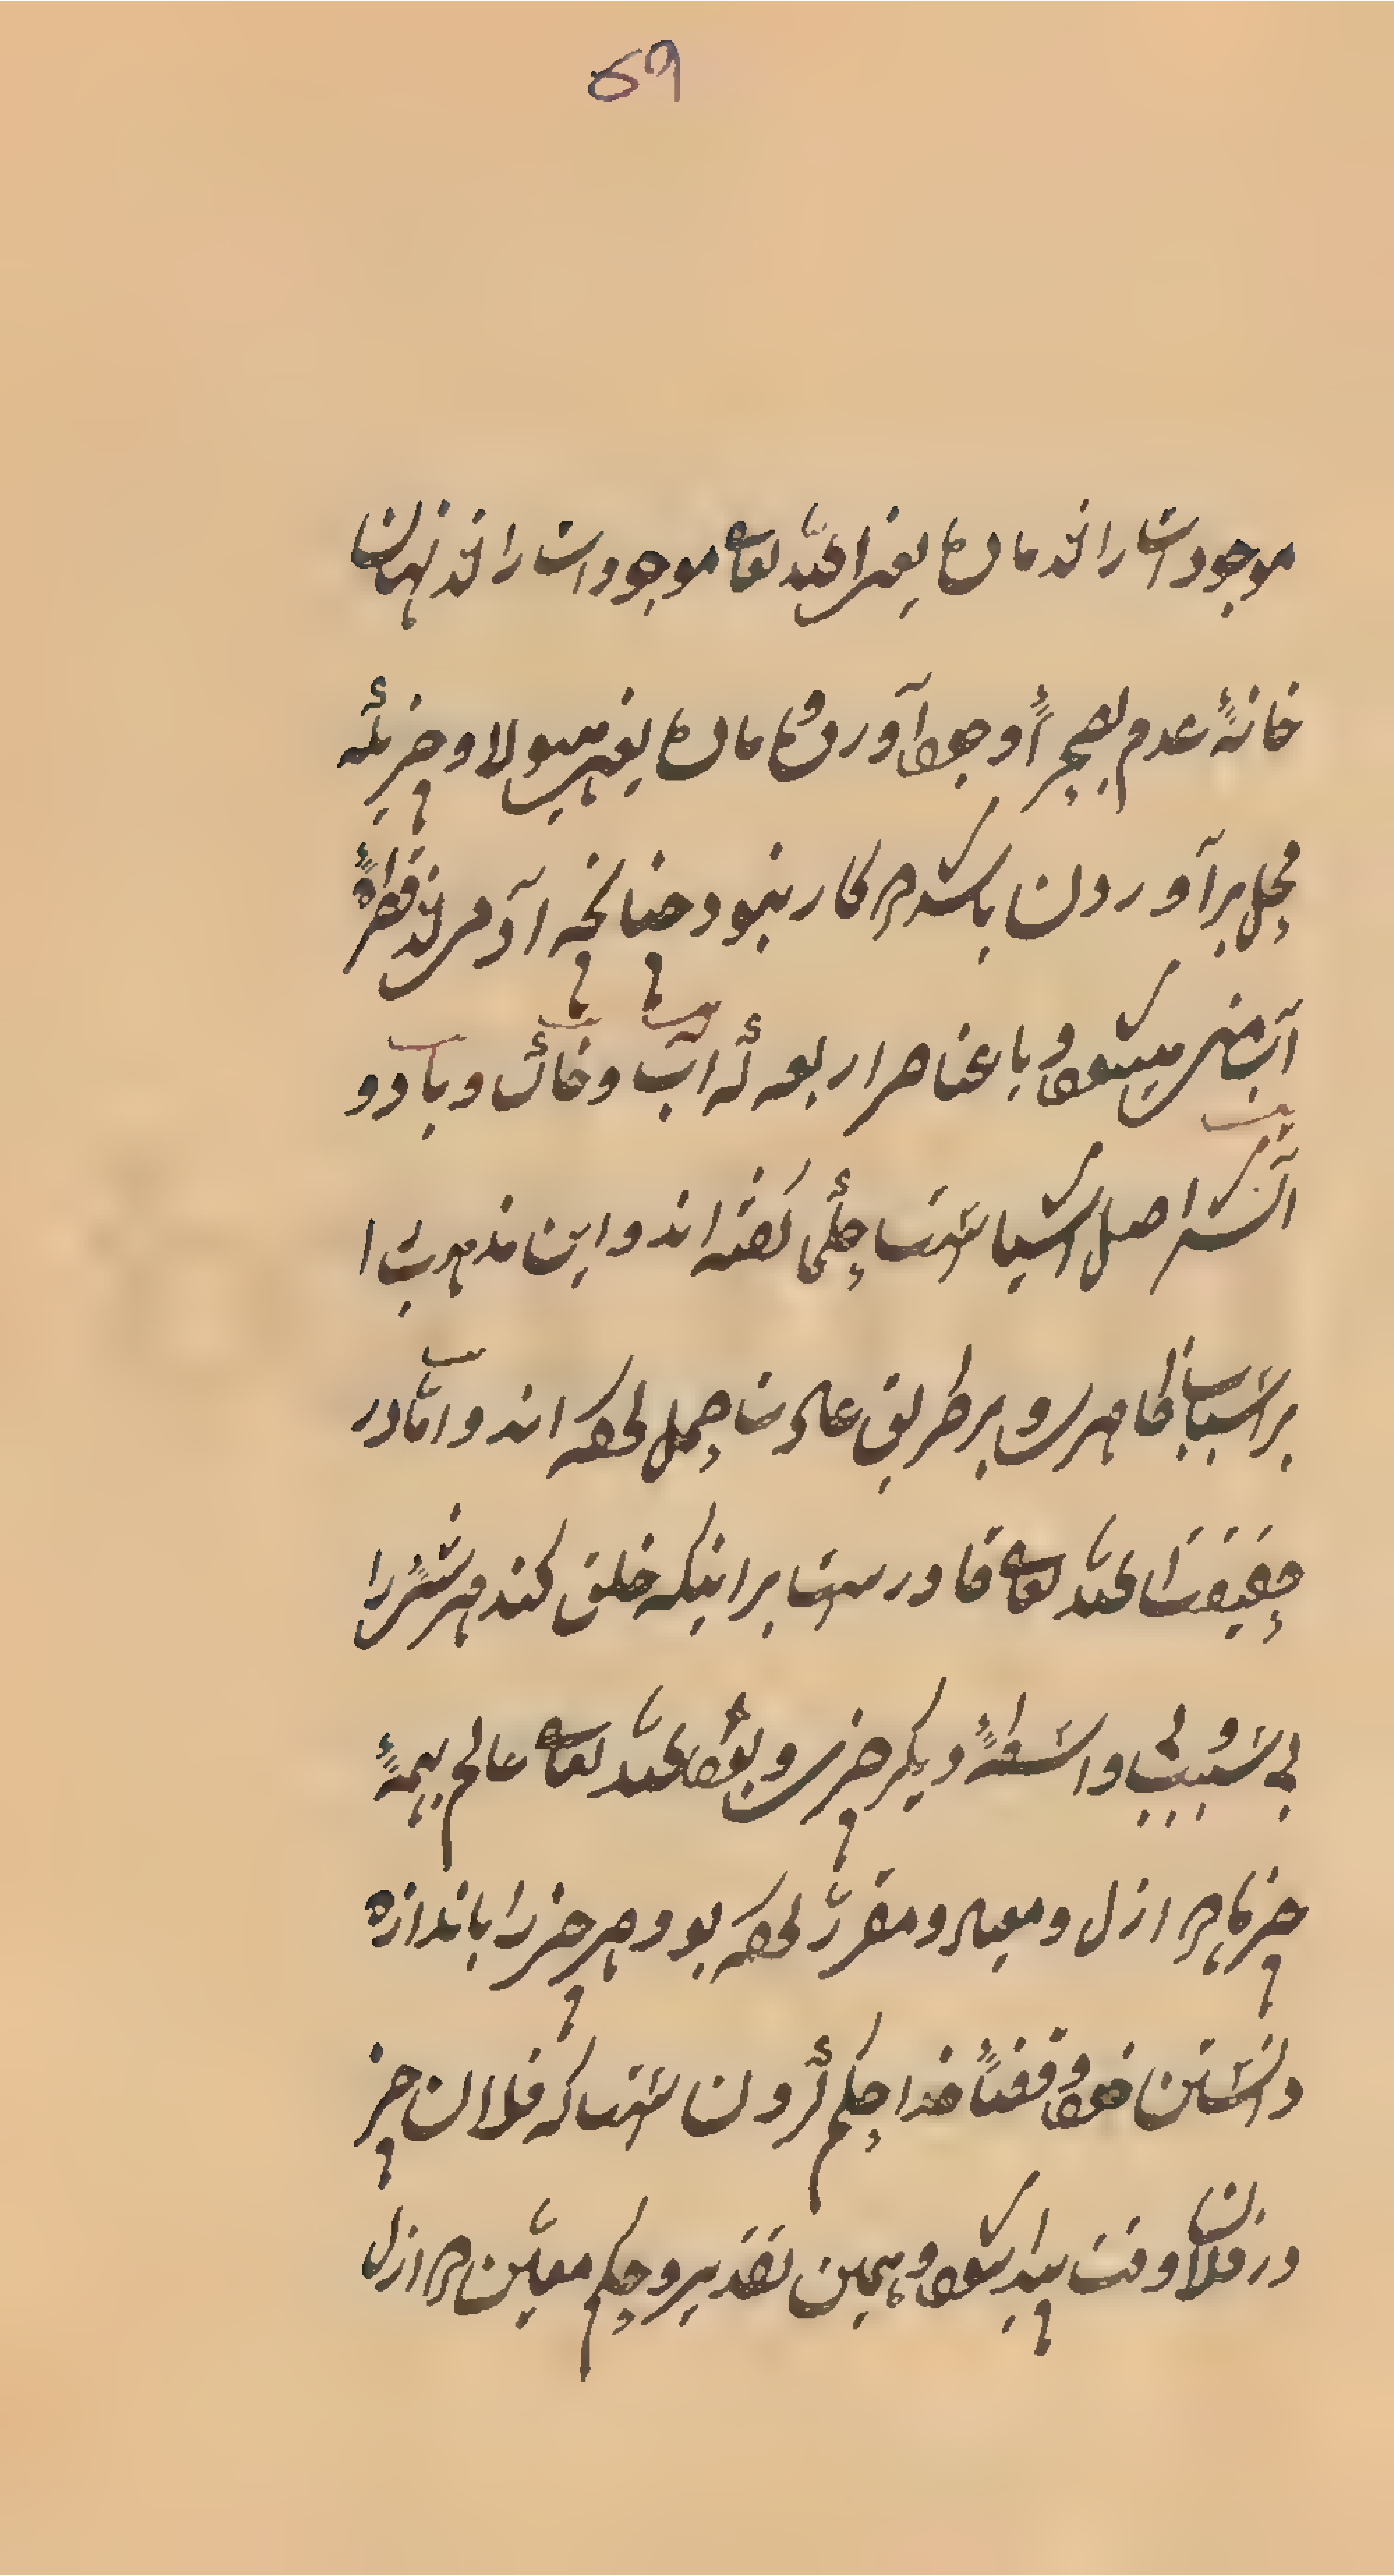 ۵۹
موجودات را از یعنی الله تعالی موجودات را از نهان
خانهٔ عدم بصحرأ وجود آورد یعنی هیولا و چیزیکه
محل برآوردن باشد در کار نبود چنانچه آدمی از قطرهٔ
آب منی میشود و با عناصر اربعه که آب و خاک و باد و
آتش اصل اشیاست حکمأ گفته اند و این مذهب را
بر اسباب ظاهری و بر طریق عادت حمل کرده اند و امّا در
حقیقت الله تعالی قادرست بر اینکه خلق کند هر شئ را
بی سببی و بی واسطهٔ دیگر چیزی و بود الله تعالی عالم بهمهٔ
چیزها در ازل و مقرّر کرده بود هر چیز را باندازه
دانستن خود و قضأ خدا حکم کردن ست که فلان چیز
در فلان وقت پیدا شود و همین تقدیر و حکم معیّن در ازل